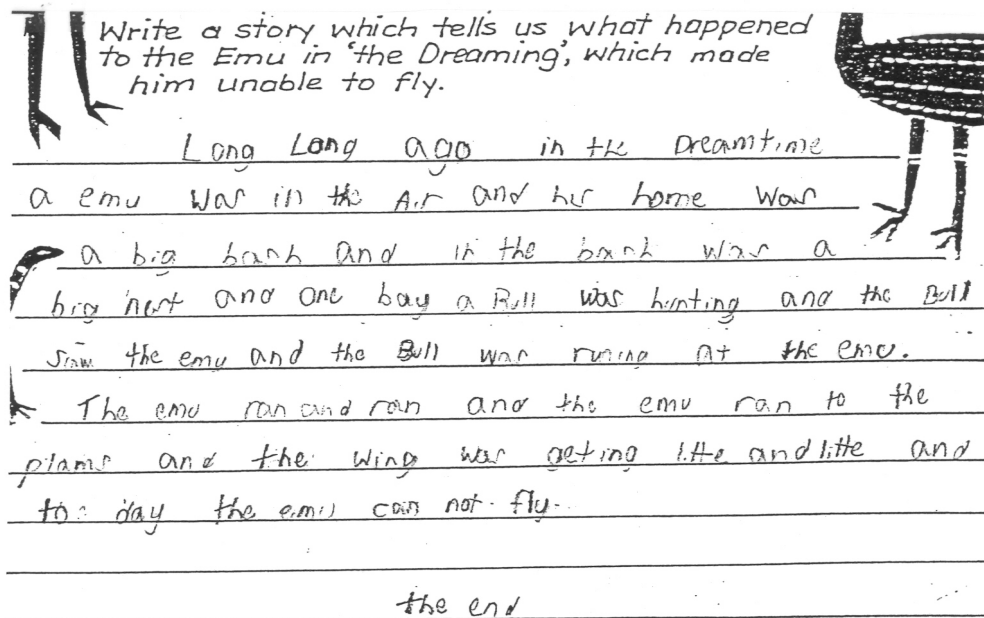 Write a story which tells us what happened
to the Emu in 'the Dreaming', which made
him unable to fly.
Long Long ago in the Dreamtime
a emu was in the Air and his home was
a big bank and in the bank was a
big nest and one bay a Bull was hunting and the Bull
siaw the emu and the Bull was runing at the emu.
The emu ran and ran and the emu ran to the
plams and the wing was geting litte and litte and
to day the emu can not fly.
the end